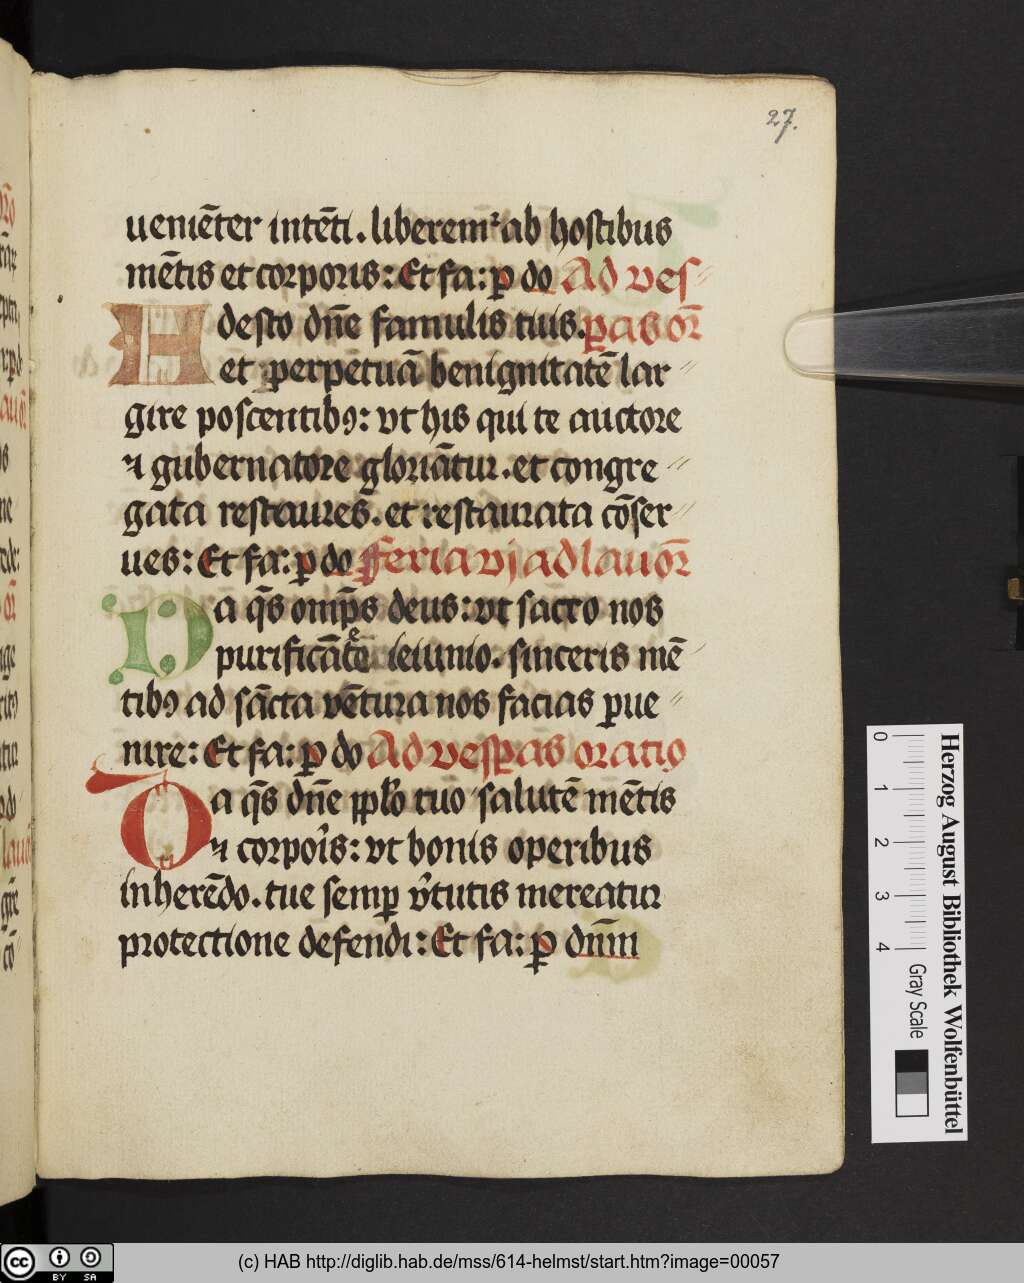 27.
ueniēter intēti. liberemᷣ ab hostibus
mētis et corporis: Et fa: ꝑ do Ad ves⸗
Adesto dn̄e famulis tuis. ꝑas or̄
et perpetuā benignitatē lar⸗
gire poscentibꝯ: vt his qui te auctore
⁊ gubernatore gloriātur. et congre⸗
gata restaures. et restaurata cōser⸗
ues: Et fa: ꝑ do fferia vj ad lau or̄
Da q̄s omp̄s deus: vt sacro nos
purificāte ieiunio. sinceris mē⸗
tibꝯ ad sācta vētura nos facias ꝑue⸗
nire: Et fa: ꝑ do Ad vesꝑas oratio
Da q̄s dn̄e ppl̄o tuo salutē mētis
⁊ corpoı̉s: vt bonis operibus
inherēdo. tue semꝑ v̉tutis mereatur
protectione defendi: Et fa: ꝑ dnm̄
Herzog August Bibliothek Wolfenbüttel
0 1 2 3 4 Gray Scale
cc BY SA
(c) HAB http://diglib.hab.de/mss/614-helmst/start.htm?image=00057